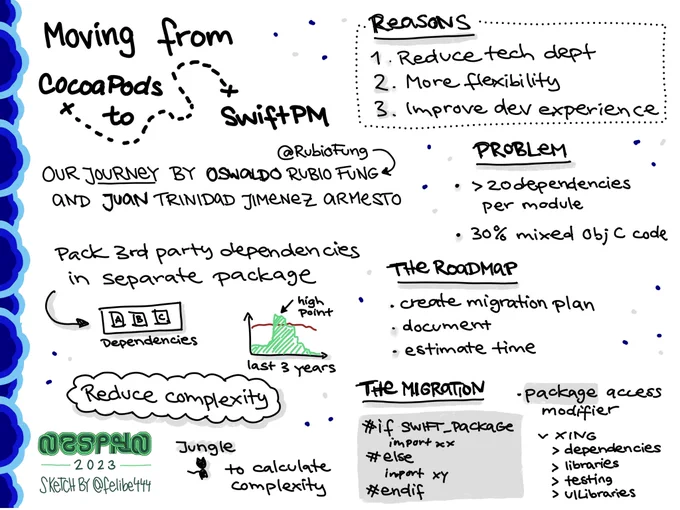 Moving from
CocoaPods
to
SwiftPM
@RubioFung
OUR JOURNEY BY OSWALDO RUBIO FUNG
AND JUAN TRINIDAD JIMENEZ ARMESTO
Reasons
1. Reduce tech dept
2. More flexibility
3. Improve dev experience
PROBLEM
• > 20 dependencies
per module
• 30% mixed Obj C code
Pack 3rd party dependencies
in separate package
A B C
Dependencies
high
point
last 3 years
THE ROADMAP
• create migration plan
• document
• estimate time
Reduce complexity
THE MIGRATION
#if SWIFT_Package
import xx
#else
import xy
#endif
• package access
modifier
XING
> dependencies
> libraries
> testing
> UILibraries
NSSPAIN
2023
SKETCH BY @felibe444
Jungle
to calculate
complexity